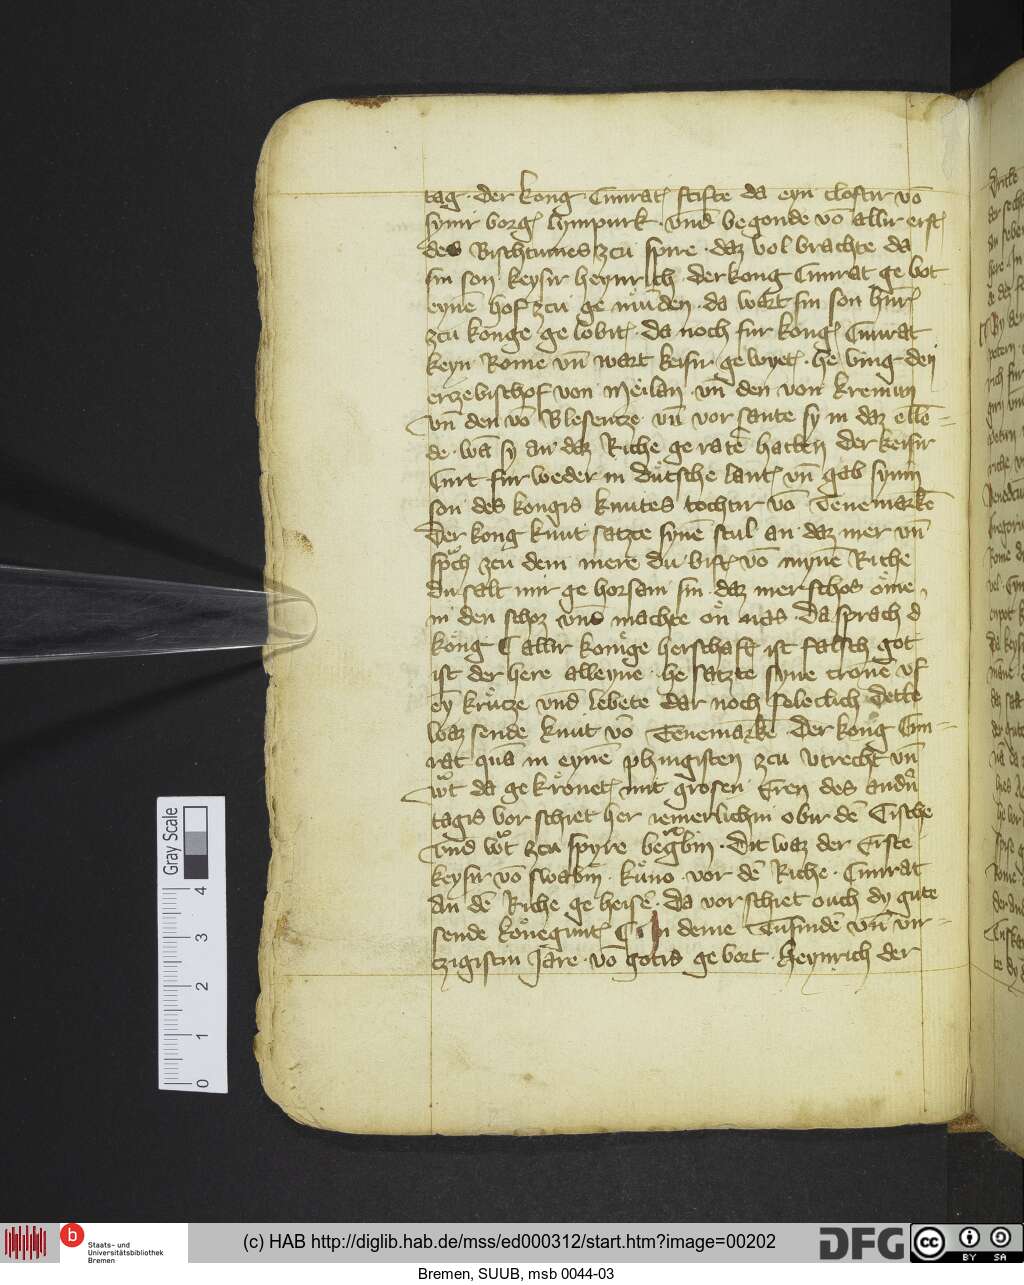 tag · der kong Cunrat stifte da eyn closter vō
syner borg lympurk · vnd begonde vō allir erst
des Bischtumes zcu spire · daz vol brachte da
sin son keysir heynrich der kong Cunrat ge bot
eynē hof zcu ge mūden · da wart sin son hinr̄
zcu konge ge lobit · da noch fur kong Cunrat
keyn Rome vn̄ wart keisir · ge wyet · he ving den
erzebischof von Meilan · vn̄ den von kremun
vn̄ den vō Blesentze · vn̄ vor sante sy in daz ellē-
de · wā sy an daz Riche ge ratē hatten der keisir
Curt fur weder in dutsche lant vn̄ gab synin
son des kongis knutes tochtir vō Tenemarkē
Der kong knut satzte synē stul an daz mer vn̄
spͦch zcu dem mere du bist vō mynē Riche
du salt mir ge horsam sin · daz mer schos ome
in den schoz vnd machte on nas · Da sprach d
kong C allir konige herschaft ist falsch got
ist der here alleyne · he satzte syne cronē vf
ey̅ krutze vnd lebete dar noch seleclich Dette
waz sende knut vō Tenemarkē Der kong Cun-
rat quā in eynē phingisten zcu vtrecht vn̄
wͦt da ge kronet mit grosen Eren des andn̄
tagis vor schiet her iemerlichin obir dē Tische
vnd wͦt zcu spyre begͣbin · Dit waz der Erste
keysir vō swabin · kuno · vor dē Riche · Cunrat
An dē Riche ge heisē · da vor schiet ouch dy gute
sende konegunt In deme Tusindē vn̄ vir-
tzigistin Jare · vō gotis ge bort · Heynrich der
Gray Scale
4
3
2
1
0
b
Staats- und
Universitätsbibliothek
Bremen
(c) HAB http://diglib.hab.de/mss/ed000312/start.htm?image=00202
DFG
cc
BY SA
Bremen, SUUB, msb 0044-03